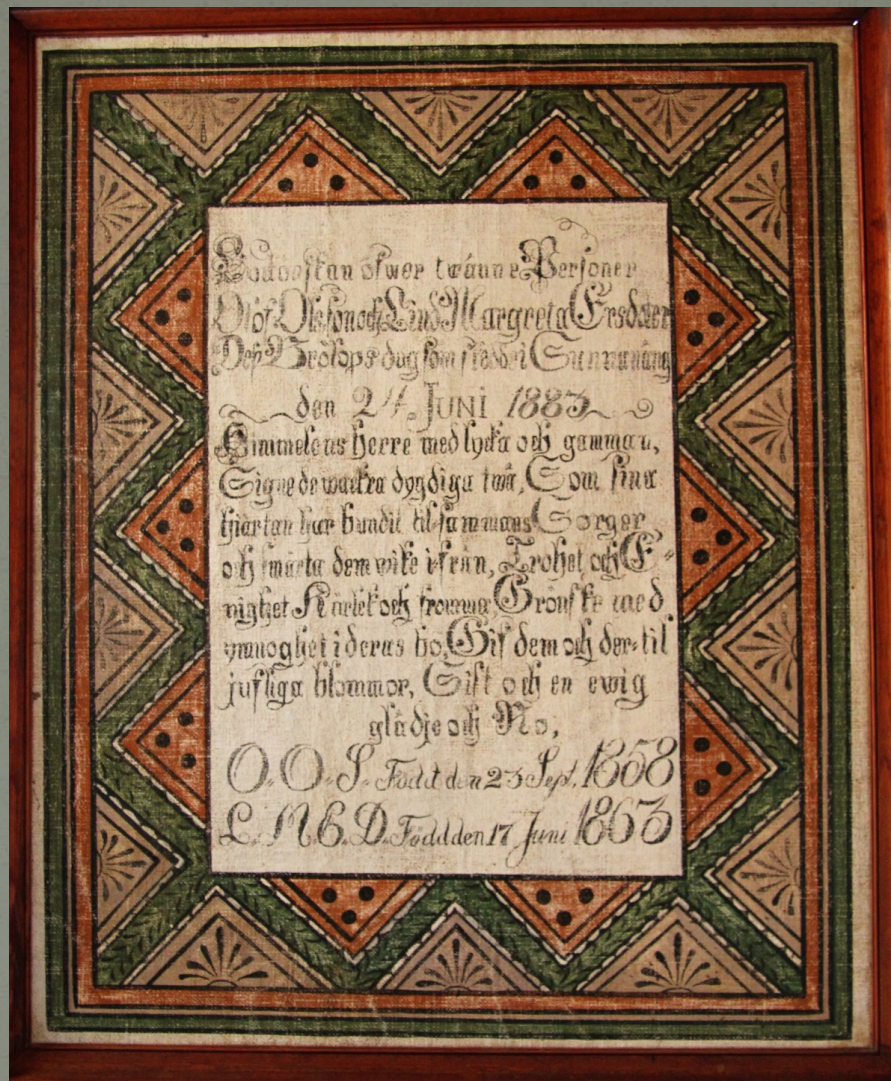 öfwer twänne Personer
Olof Olsson och Lind Margreta Ersdoter
Deß Brölops dag som skedde i Sunnanäng
den 24 JUNI 1883
Himmelens herre med lycka och gamman,
Signe de wackra dygdiga twå, Som sina
hjärtan har bundit til sammans Sorger
och smärta dem wike ifrån, Trohet och E"
nighet Kärlek och fromma Grönske med
ymnoghet i deras bo, Gif dem och der-til
jufliga blommor, Sist och en ewig
glädje och Ro,
O. O. S. Född den 23 Sept. 1858
L. M. E. D. Född den 17 Juni 1863